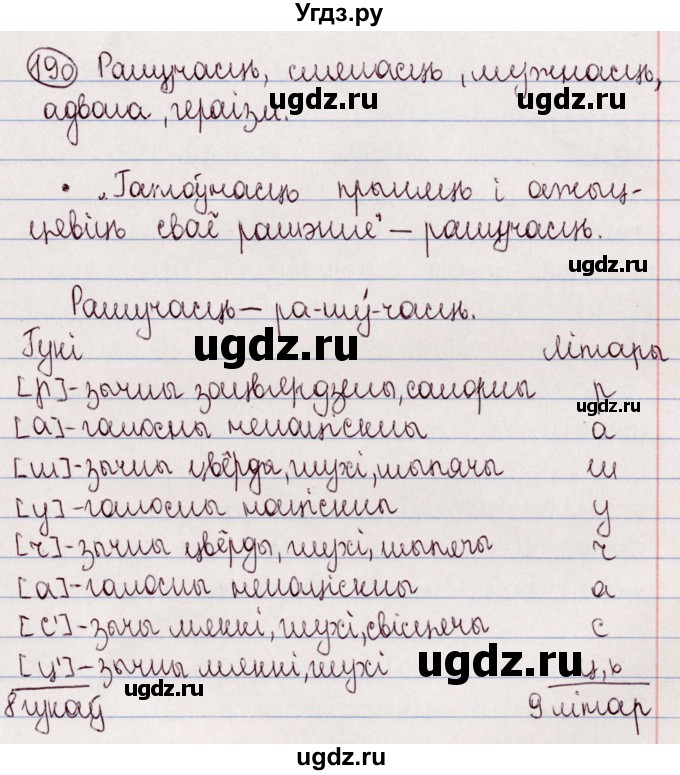 Угдз.ру
190 Рашучасць, смеласць, мужнасць,
адвага, гераізм.
• „Гатоўнасць прыняць і ажыц-
цявіць сваё рашэнне" – рашучасць.
Рашучасць – ра-шу́-часць.
Гукі літары
[р] - зычны зацвярдзелы, санорны р
[а] - галосны ненаціскны а
[ш] - зычны цвёрды, глухі, шыпячы ш
[у] - галосны націскны у
[ч] - зычны цвёрды, глухі, шыпячы ч
[а] - галосны ненаціскны а
[с'] - зычы мяккі, глухі, свісцячы с
[ц'] - зычны мяккі, глухі ц, ь
8 гукаў 9 літар
ugdz.ru
ugdz.ru
ugdz.ru
ugdz.ru
ugdz.ru
ugdz.ru
ugdz.ru
ugdz.ru
ugdz.ru